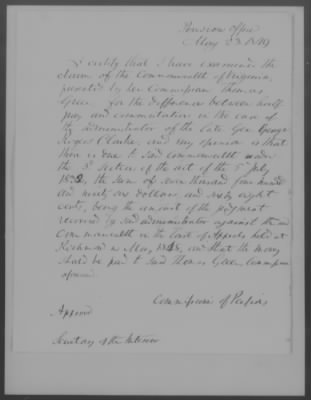 Pension Office
May 23. 1849
I certify that I have examined the
claim of the Commonwealth of Virginia,
presented by her Commissioner Thomas
Green for the difference between half
pay and commutation in the case of
the administrator of the late Gen George
Rogers Clarke, and my opinion is that
there is due to said Commonwealth under
the 3d section of the act of the 5 July
1832, the sum of seven thousand four hundred
and ninety one dollars and sixty eight
cents, being the amount of the judgment
recovered by said administrator against the
Commonwealth in the Court of Appeals held at
Richmond in May, 1848, and that the money
should be paid to said Thomas Green, Commissioner
aforesaid
Commissioner of Pensions
Approved
Secretary of the Interior